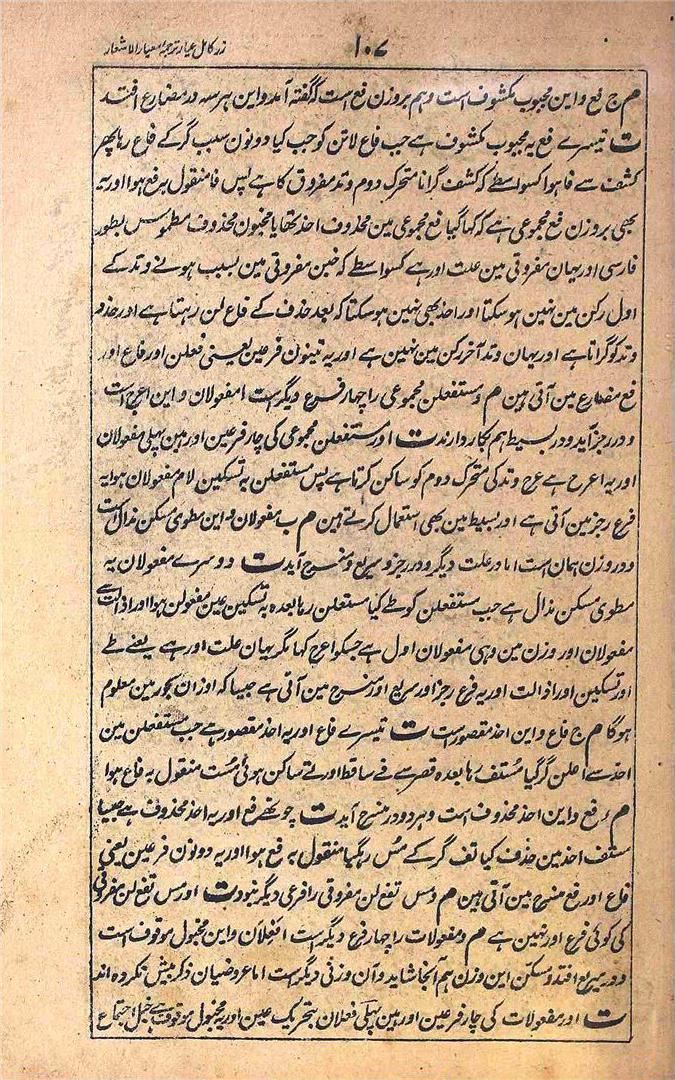 ۱۰۷
زر کامل عیار ترجمہ معیار الاشعار
م ج فع واین مجبوب مکشوف است وہم بروزن فع است کہ گفتہ آمد واین ہر سہ در مضارع افتد
ت تیسرے فع یہ مجبوب مکشوف ہے جب فاع لاتن کو جب کیا دونون سبب گر کے فاع رہا پھر
کشف سے فا ہوا کسواسطے کہ کشف گرانا متحرک دوم وتد مفروق کا ہے پس فا منقول بر فع ہوا اور یہ
بھی بروزن فع مجموعی ہے کہ کہا گیا فع مجموعی مین محذوف احذ تھا یا مخبون محذوف مطموس بطور
فارسی اور یہان مفروقی مین علت اور ہے کسواسطے کہ خبن مفروقی مین بسبب ہونے وتد کے
اول رکن مین نہین ہو سکتا اور احذ بھی نہین ہو سکتا کہ بعد حذف کے فاع لن رہتا ہے اور حذذ
وتد کو گراتا ہے اور یہان وتد آخر رکن مین نہین ہے اور یہ تینون فرعین یعنی فعلن اور فاع اور
فع مضارع مین آتی ہین م ومستفعلن مجموعی را چہار فرع دیگر است ا مفعولان و این اعرج است
و در رجز آید و در بسیط ہم بکار دارند ت اور مستفعلن مجموعی کی چار فرعین اور ہین پہلی مفعولان
اور یہ اعرج ہے عرج وتد کی متحرک دوم کو ساکن کرتا ہے پس مستفعلن بہ تسکین لام مفعولان ہوا یہ
فرع رجز مین آتی ہے اور بسیط مین بھی استعمال کرتے ہین م ب مفعولان واین مطوی مسکن مذال است
و در وزن ہمان است اما در علت دیگر و در رجز و سریع و منسرح آید ت دوسرے مفعولان یہ
مطوی مسکن مذال ہے جب مستفعلن کو طے کیا مستعلن رہا بعدہ بہ تسکین عین مفعولن ہوا اور اذالت سے
مفعولان اور وزن مین وہی مفعولان اول ہے جسکو اعرج کہا مگر یہان علت اور ہے یعنے طے
اور تسکین اور اذالت اور یہ فرع رجز اور سریع اور منسرح مین آتی ہے جیسا کہ اوزان بحور مین معلوم
ہوگا م ج فاع واین احذ مقصور است ت تیسرے فاع اور یہ احذ مقصور ہے جب مستفعلن مین
احذ سے علن گر گیا مستف رہا بعدہ قصر سے فے ساقط اور تے ساکن ہوئی مست منقول بہ فاع ہوا
م ء فع واین احذ محذوف است و ہر دو در منسرح آید ت چوتھے فع اور یہ احذ محذوف ہے جیسا
مستف احذ مین حذف کیا تف گر کے مس رہگیا منقول بہ فع ہوا اور یہ دونون فرعین یعنی
فاع اور فع منسرح مین آتی ہین م ومس تفع لن مفروقی را فرعی دیگر نبود ت اور مس تفع لن مفروقی
کی کوئی فرع اور نہین ہے م ومفعولات را چہار فرع دیگر است ا فعلان واین مخبول موقوف است
و در سریع افتد و مسکن این وزن ہم آنجا شاید و آن وزنی دیگر است اما عروضیان ذکرش نکردہ اند
ت اور مفعولات کی چار فرعین اور ہین پہلی فعلان بتحریک عین اور یہ مخبول موقوف ہے خبل اجتماع